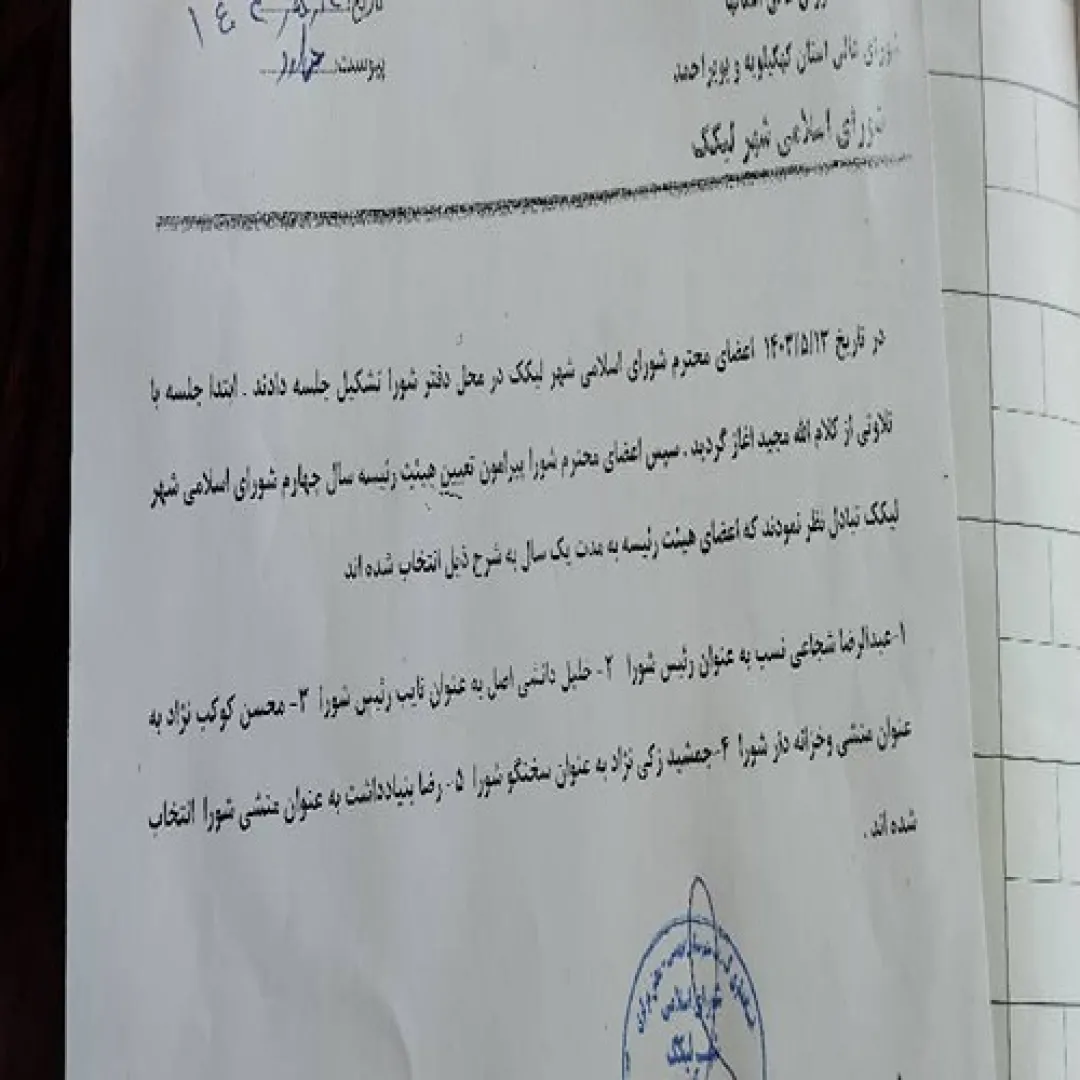 تاریخ:
پیوست: دارد
شورای عالی استان کهگیلویه و بویراحمد
شورای اسلامی شهر لیکک
در تاریخ ۱۴۰۳/۵/۱۳ اعضای محترم شورای اسلامی شهر لیکک در محل دفتر شورا تشکیل جلسه دادند . ابتدا جلسه با
تلاوتی از کلام الله مجید اغاز گردید . سپس اعضای محترم شورا پیرامون تعیین هیئت رئیسه سال چهارم شورای اسلامی شهر
لیکک تبادل نظر نمودند که اعضای هیئت رئیسه به مدت یک سال به شرح ذیل انتخاب شده اند
۱-عبدالرضا شجاعی نسب به عنوان رئیس شورا ۲- خلیل دانشی اصل به عنوان نایب رئیس شورا ۳- محسن کوکب نژاد به
عنوان منشی وخزانه دار شورا ۴-جمشید زکی نژاد به عنوان سخنگو شورا ۵- رضا بنیادداشت به عنوان منشی شورا انتخاب
شده اند .
شورای اسلامی
شهر لیکک